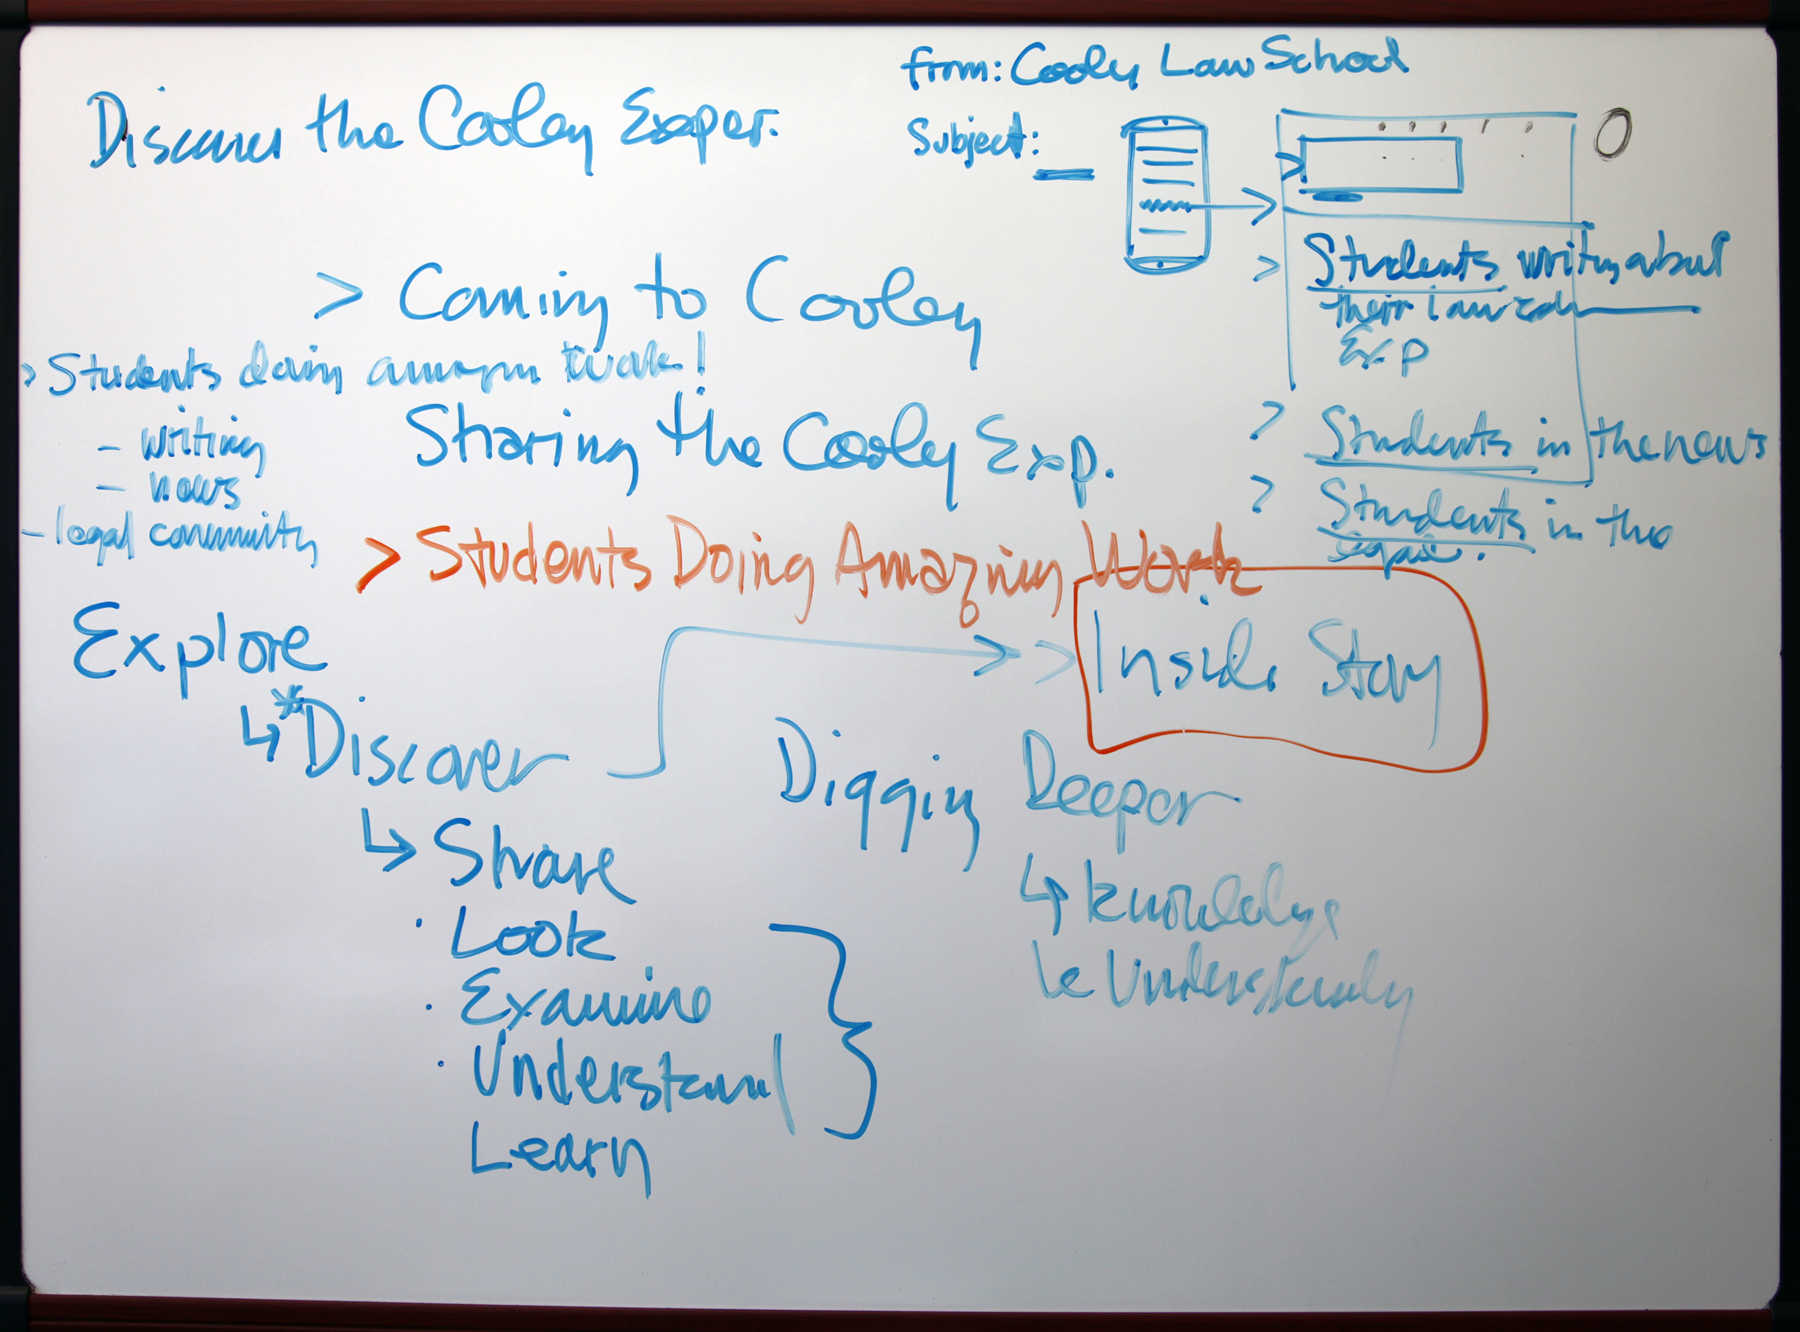 from: Cooley Law School
Discover the Cooley Exper.
Subject:
> Students writing about
their law
Exp
> Coming to Cooley
> Students doing amazing work!
- writing
- news
- legal community
Sharing the Cooley Exp.
> Students in the news
> Students in the
> Students Doing Amazing Work
Explore
> Inside Story
* Discover
Digging Deeper
Share
knowledge
· Look
Understanding
· Examine
· Understand
Learn